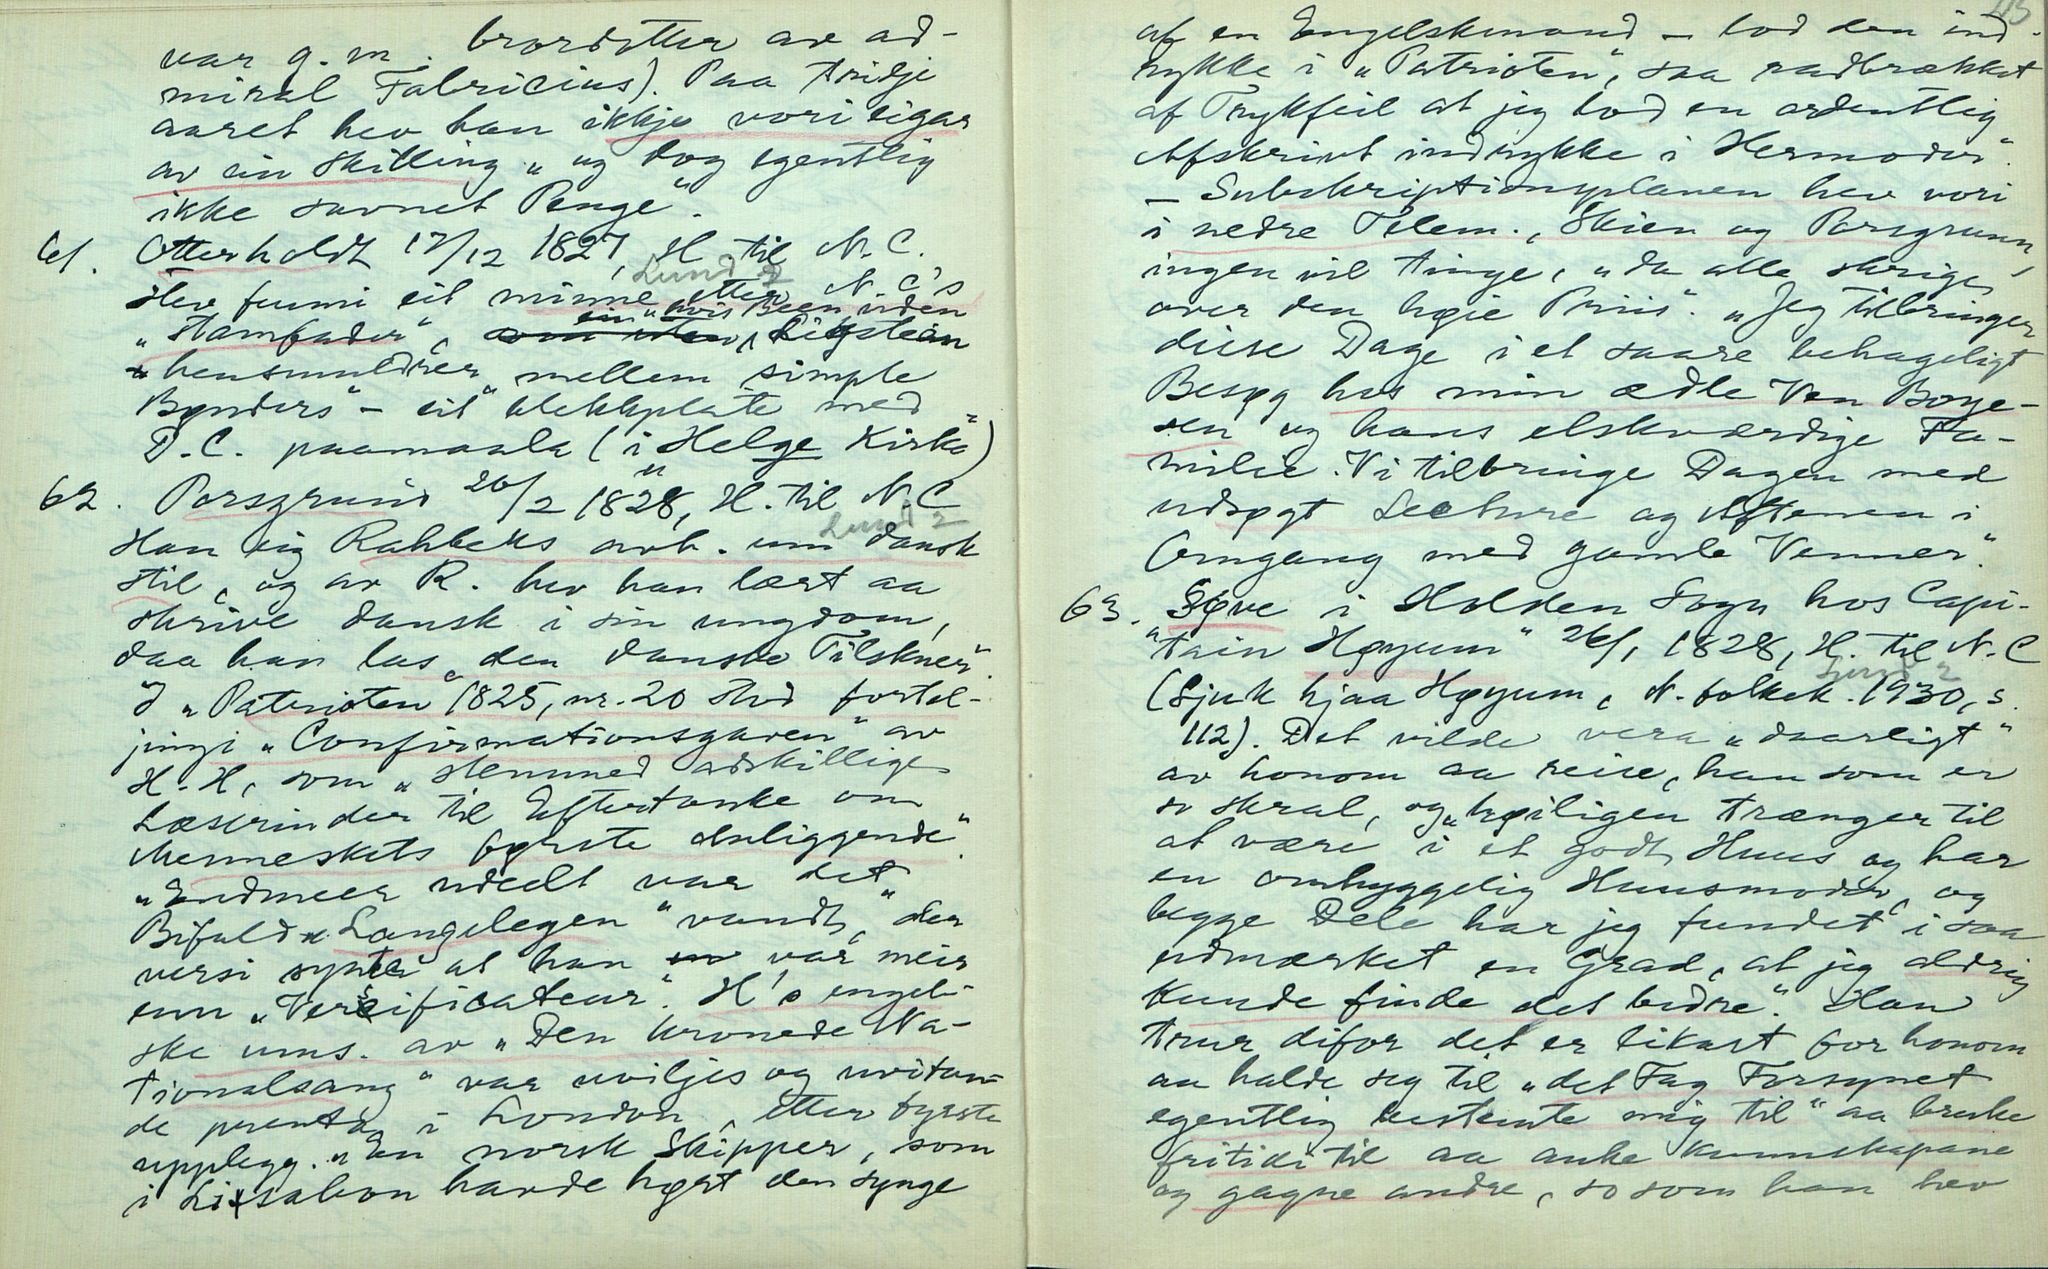 var g. m. brordotter av ad-
miral Fabricius). Paa tridje
aaret hev han ikkje vori eigar
av ein skilling "og dog egentlig
ikke savnet Penge".
61. Otterholdt 17/12 1827, H til N. C.
Lund 2
Hev funni eit minne etter N C's
"Stamfader", ein "hvis Been uden Ligsteen
hensmuldrer mellem simple
Bønders" – eit blekkplate med
D. C. paamaala (i Helge Kirke")
62. Porsgrund 26/2 1828, H. til N. C
Lund 2
Han eig Rahbeks arb. um dansk
stil, og av R. hev han lært aa
skrive dansk i sin ungdom,
daa han las "den danske Tilskuer".
I "Patrioten" 1825, nr. 20 stod fortel-
jingi "Confirmationsgaven" av
H. H, som "stemmed adskillige
Læserinder til Eftertanke om
Menneskets første Anliggende".
"Endmeer udeelt var det
Bifald" "Langelegen" vandt, den
versi synte at han var meir
enn "Versificateur". H's engel-
ske ums. av "Den kronede Na-
tionalsang" var uviljes og uvitan-
de prenta i London, etter fyrste
upplegg. "En norsk Skipper, som
i Lissabon havde hørt den synge
af en Engelskmand – lod den ind-
rykke i "Patrioten", saa radbrækket
af Trykfeil at jeg lod en ordentlig
Afskrivt indrykke i Hermoder".
– Subskriptionsplanen hev vori
i nedre Telem., Skien og Porsgrunn,
ingen vil tinge, "da alle skrige
over den høie Priis". "Jeg tilbringer
disse Dage i et saare behageligt
Besøg hos min ædle Ven Boye-
sen og hans elskværdige Fa-
milie. Vi tilbringe Dagen med
udsøgt Lecture og Aftenen i
Omgang med gamle Venner".
63. Søve i Holden Sogn hos Capi-
tain Høyum" 26/1 1828, H. til N. C
Lund 2
(Sjuk hjaa Høyum, N. folkek. 1930, s.
112). Det vilde vera "daarligt"
av honom aa reise, han som er
so skral, og "høiligen trænger til
at være i et godt Huus og har
en omhyggelig Huusmoder, og
begge Dele har jeg fundet i saa
udmærket en Grad, at jeg aldrig
kunde finde det bedre". Han
trur difor det er likast for honom
aa halde seg til "det Fag Forsynet
egentlig bestemte mig til" aa bruke
fritidi til aa auke kunnskapane
og gagne andre, so som han hev